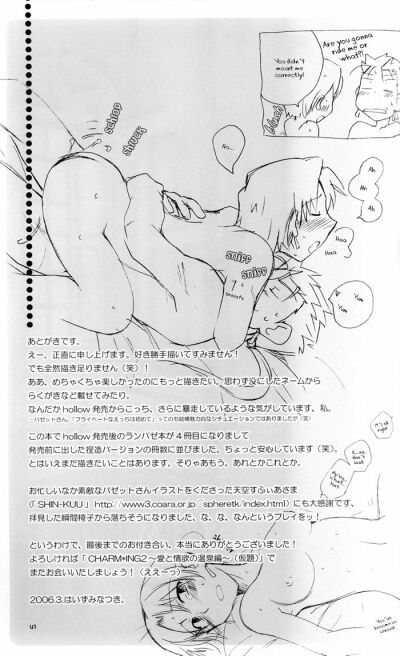 You didn't mount me correctly!
Are you gonna ride me or what?!
schlop
shluck
No...
Ah
Ah
Ah
Haa
Haa
snicc
snicc
breasts
Yum
Yum
あとがきです。
えー。正直に申し上げます。好き勝手描いてすみません!
でも全然描き足りません(笑)!
ああ、めちゃくちゃ楽しかったのにもっと描きたい。思わず没にしたネームから
らくがきなど載せてみたり。
なんだかhollow発売からこっち、さらに暴走しているような気がしています、私。
―バゼットさん、「プライベートなえっちは初めて」ってのも結構魅力的なシチュエーションではありましたが(笑)
この本でhollow発売後のランバゼ本が4冊目になりまして
発売前に出した捏造バージョンの冊数に並びました。ちょっと安心しています(笑)。
とはいえまだ描きたいことはあります。そりゃあもう。あれとかこれとか。
お忙しいなか素敵なバゼットさんイラストをくださった天空すふぃあさま
(「SHIN-KUU」http://www3.coara.or.jp/~spheretk/index.html)にも大感謝です、
拝見した瞬間椅子から落ちそうになりました。な、な、なんというプレイをッ!
というわけで、最後までのお付き合い、本当にありがとうございました!
よろしければ「CHARM*ING2~愛と情欲の温泉編~(仮題)」で
またお会いいたしましょう!(ええーっ)
2006.3.はいずみなつき。
It's all right
don't look
You've become so
41